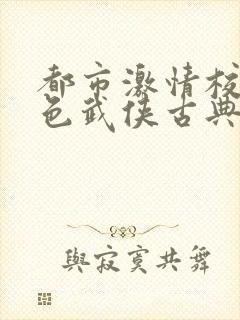 都市激情校
色武侠古典
與寂寞共舞